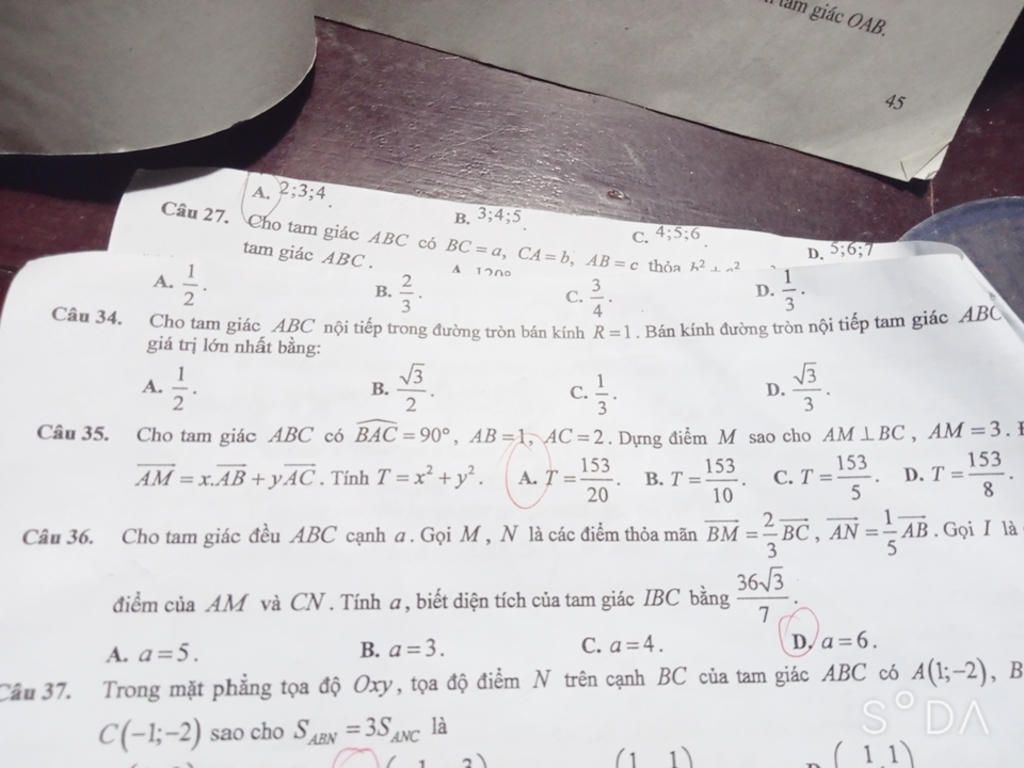 tam giác OAB.
45
A. 2;3;4. B. 3;4;5. C. 4;5;6. D. 5;6;7
Câu 27. Cho tam giác ABC có BC = a, CA = b, AB = c thỏa b² + c²
tam giác ABC. A 120°
A. 1/2. B. 2/3. C. 3/4. D. 1/3.
Câu 34. Cho tam giác ABC nội tiếp trong đường tròn bán kính R = 1. Bán kính đường tròn nội tiếp tam giác ABC
giá trị lớn nhất bằng:
A. 1/2. B. √3/2. C. 1/3. D. √3/3.
Câu 35. Cho tam giác ABC có BAC = 90°, AB = 1, AC = 2. Dựng điểm M sao cho AM ⊥ BC, AM = 3.
AM = x.AB + yAC. Tính T = x² + y². A. T = 153/20. B. T = 153/10. C. T = 153/5. D. T = 153/8.
Câu 36. Cho tam giác đều ABC cạnh a. Gọi M, N là các điểm thỏa mãn BM = 2/3 BC, AN = 1/5 AB. Gọi I là
điểm của AM và CN. Tính a, biết diện tích của tam giác IBC bằng 36√3/7.
A. a = 5. B. a = 3. C. a = 4. D. a = 6.
Câu 37. Trong mặt phẳng tọa độ Oxy, tọa độ điểm N trên cạnh BC của tam giác ABC có A(1;-2), B
C(-1;-2) sao cho S_ABN = 3S_ANC là
SODA